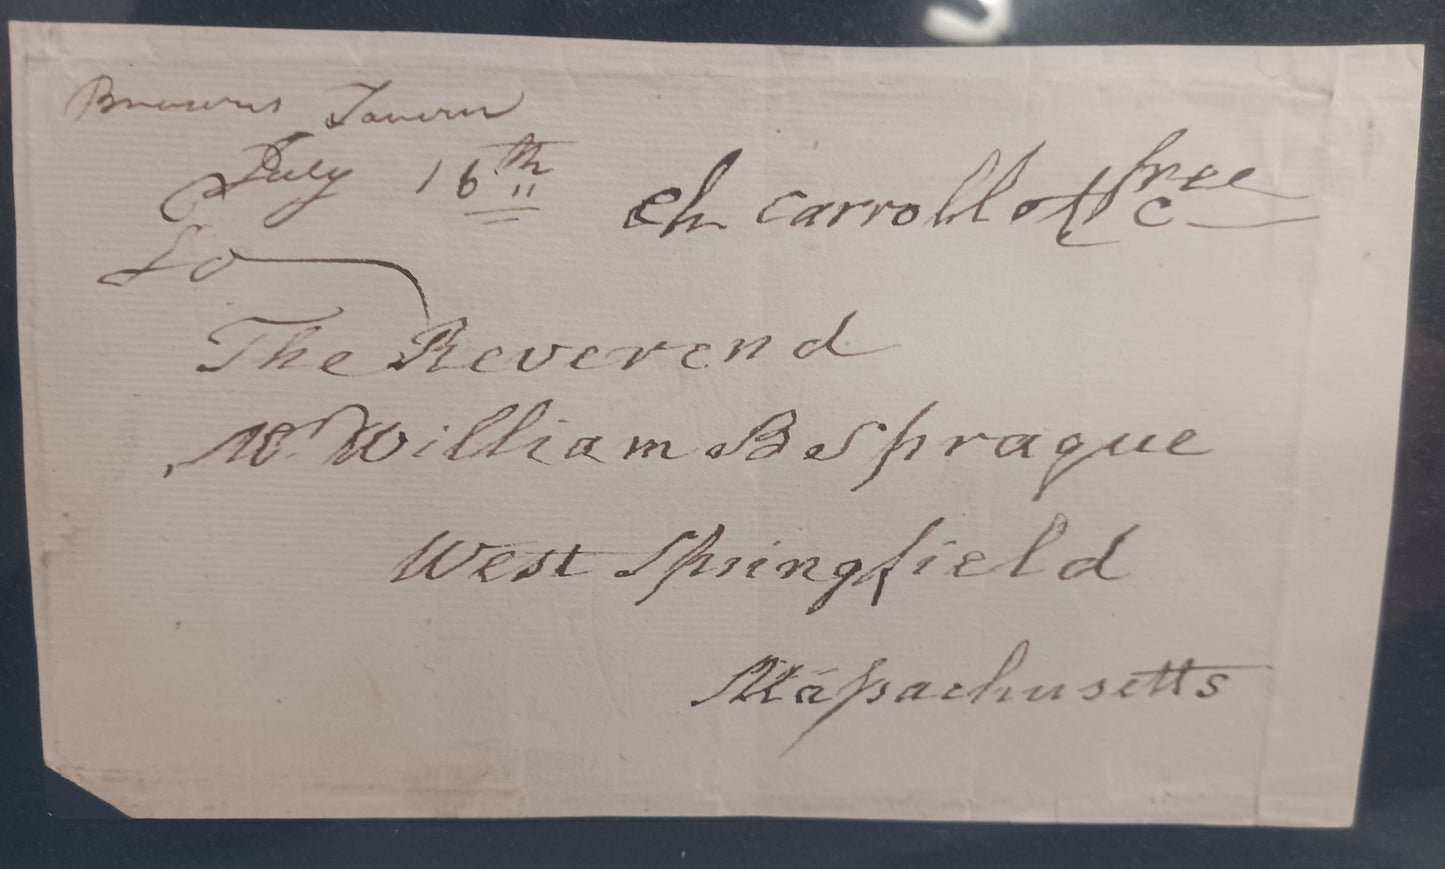 Browns Tavern
July 16th
free
Ch Carroll of C
To
The Reverend
Mr. William B Sprague
West Springfield
Maſsachusetts